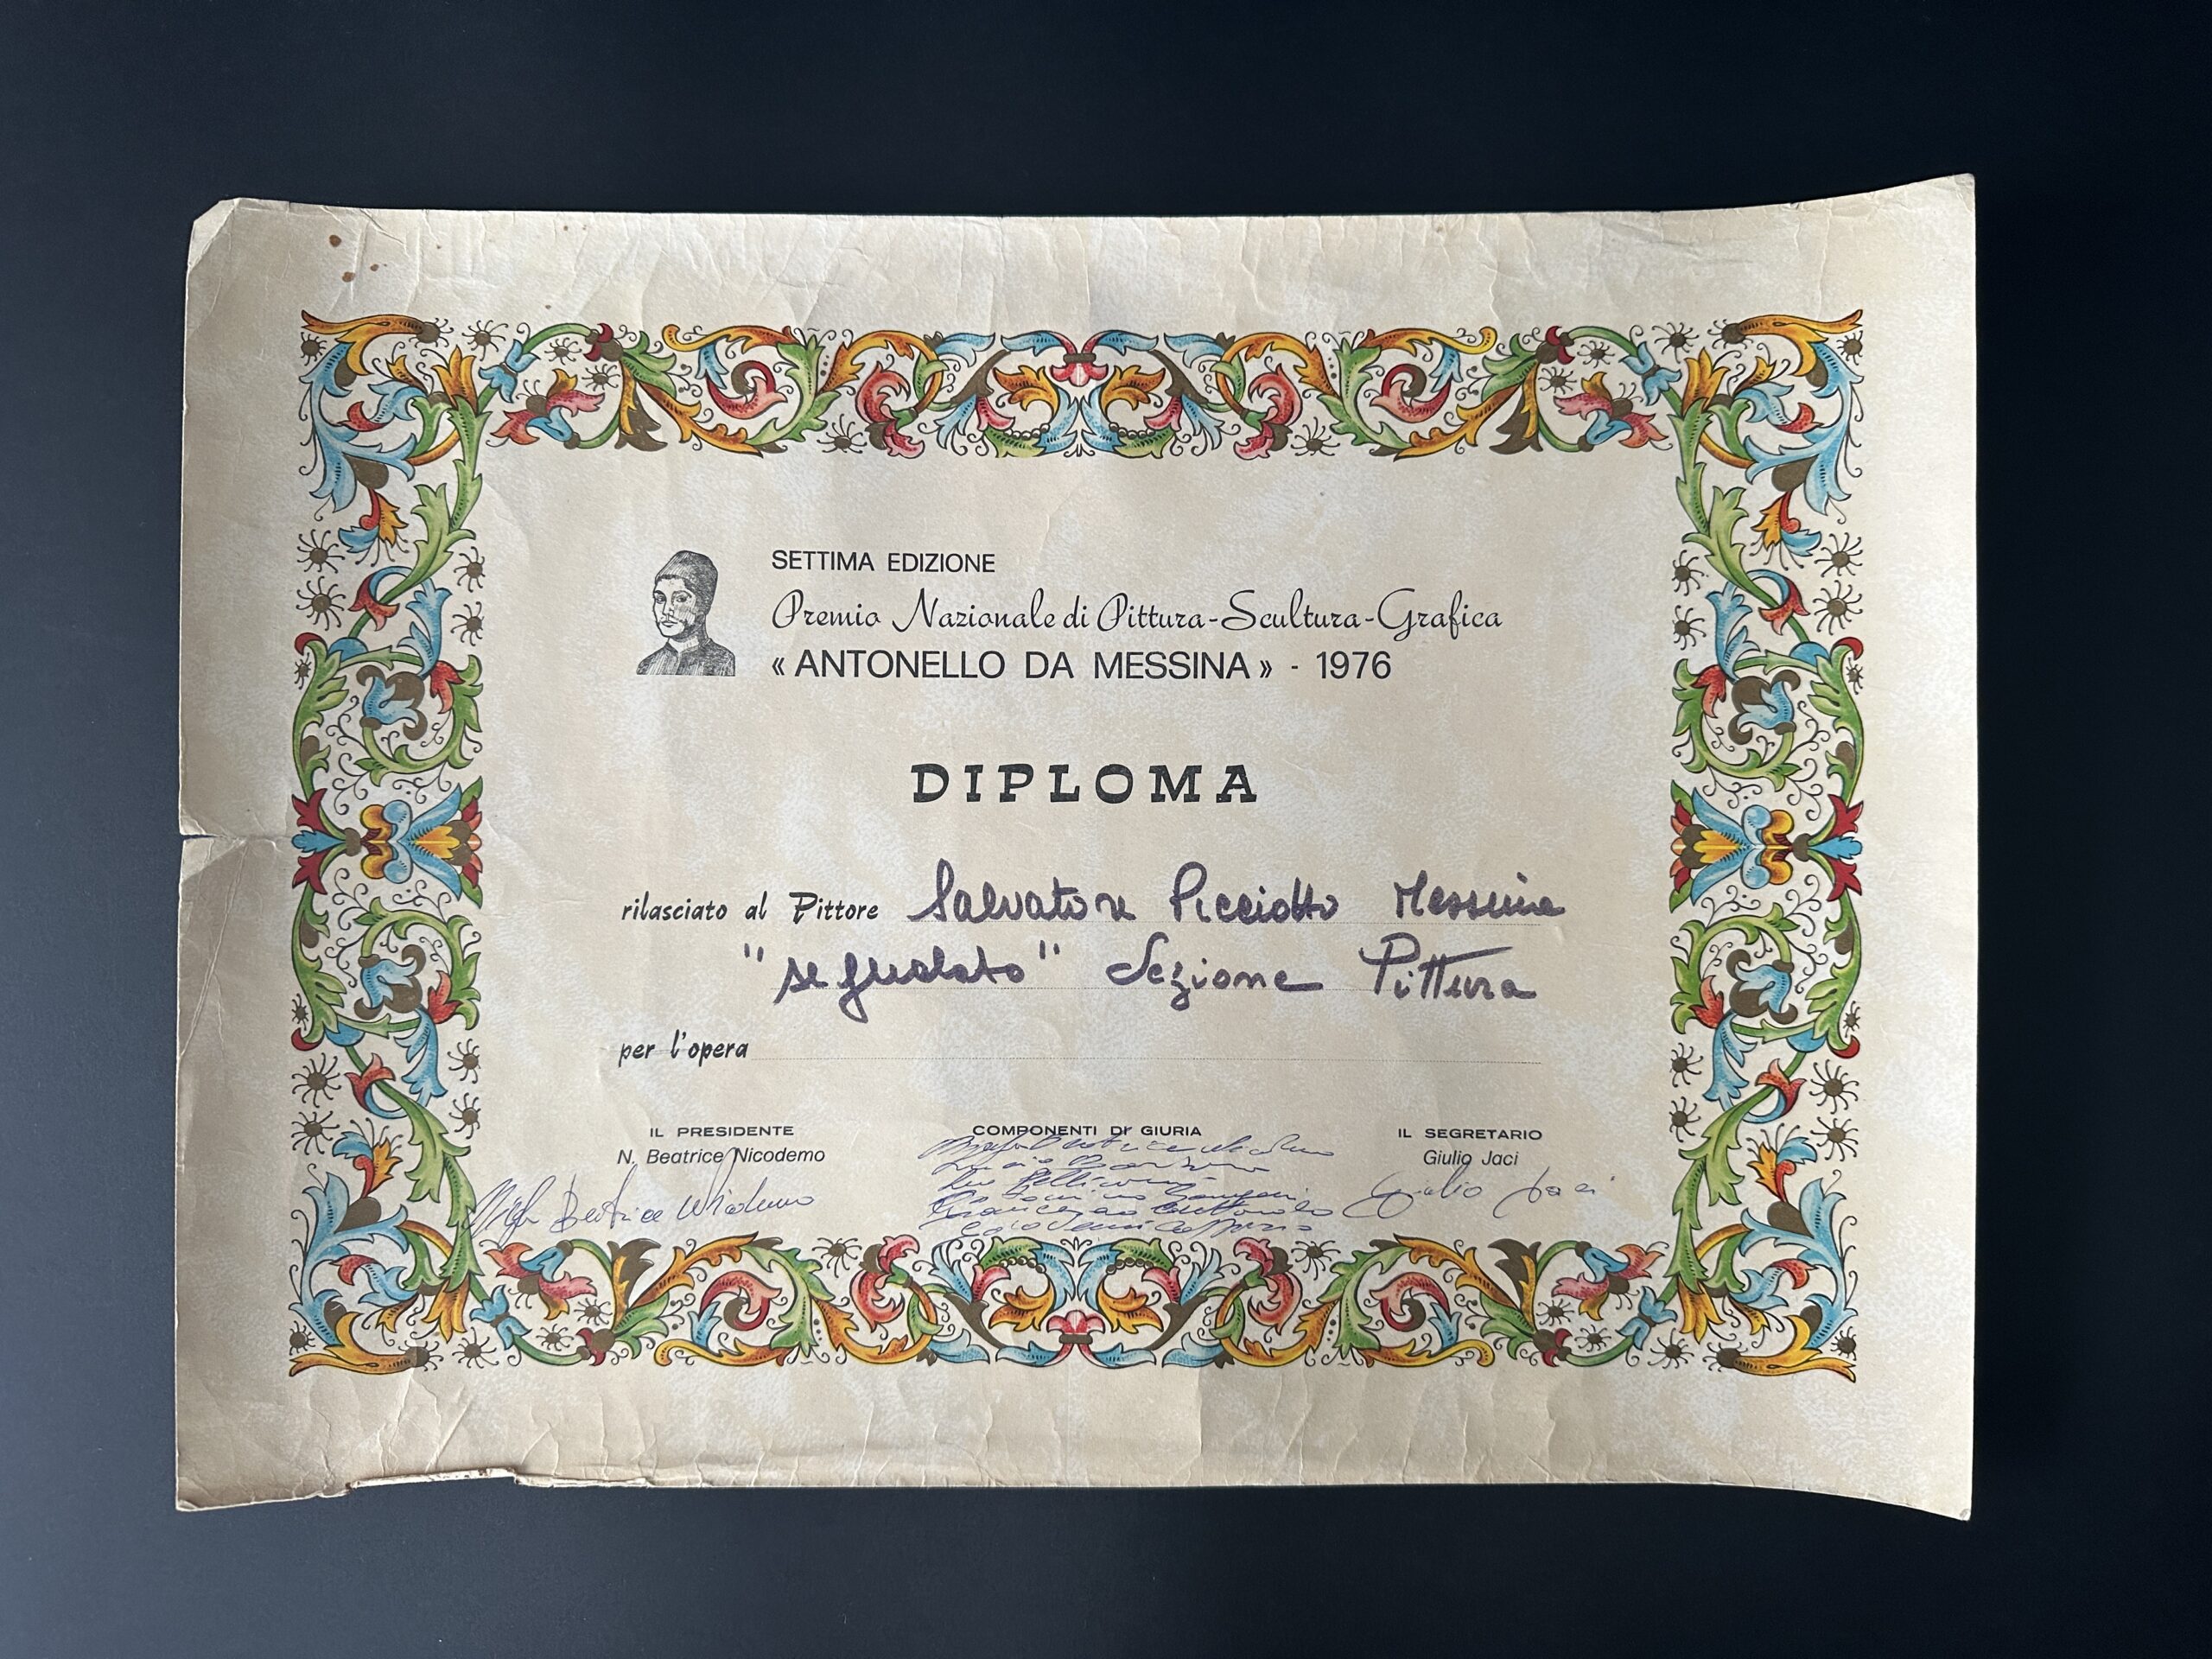 SETTIMA EDIZIONE
Premio Nazionale di Pittura-Scultura-Grafica
« ANTONELLO DA MESSINA » - 1976
DIPLOMA
rilasciato al Pittore Salvatore Picciotto Messina
"segnalato" Sezione Pittura
per l'opera
IL PRESIDENTE
N. Beatrice Nicodemo
COMPONENTI DI GIURIA
IL SEGRETARIO
Giulio Jaci
Beatrice Nicodemo
Giulio Jaci